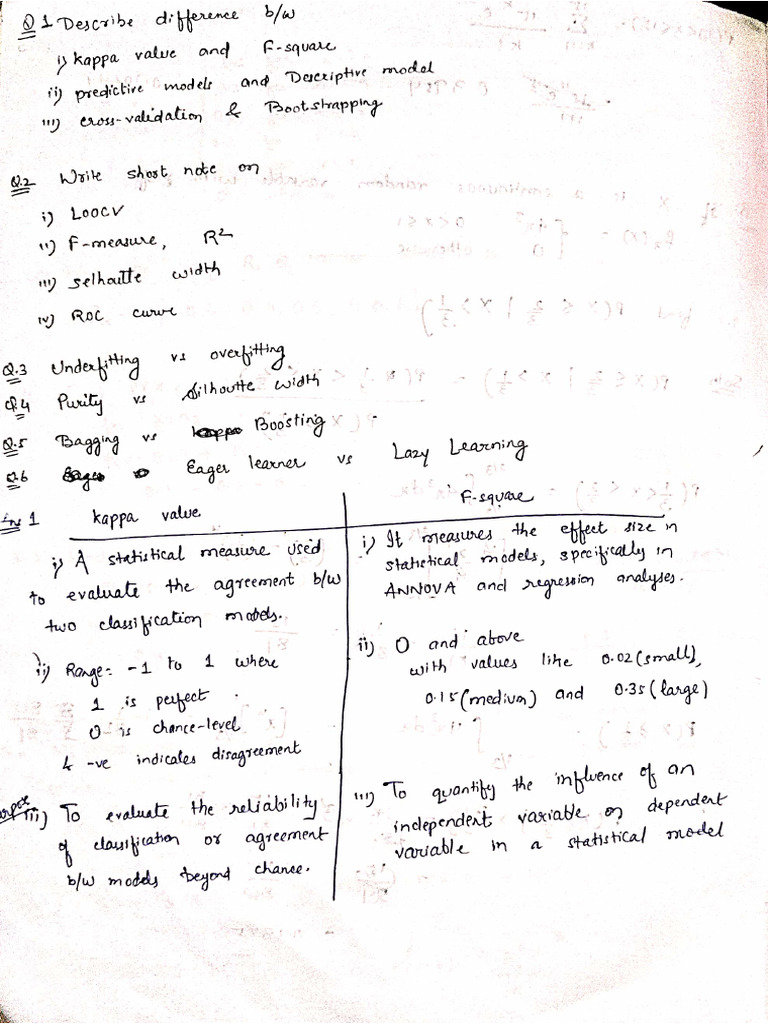 Q1 Describe difference b/w
i) kappa value and F-square
ii) predictive models and Descriptive model
iii) cross-validation & Bootstrapping
Q.2 Write short note on
i) LOOCV
ii) F-measure, R²
iii) selhoutte width
iv) ROC curve
Q.3 Underfitting vs overfitting
Q.4 Purity vs Silhoutte width
Q.5 Bagging vs Boosting
Q.6 Eager learner vs Lazy Learning
1 kappa value
i) A statistical measure used
to evaluate the agreement b/w
two classification models.
ii) Range:- -1 to 1 where
1 is perfect
0 is chance-level
& -ve indicates disagreement
iii) To evaluate the reliability
of classification or agreement
b/w models beyond chance.
F-square
i) It measures the effect size in
statistical models, specifically in
ANNOVA and regression analyses.
ii) 0 and above
with values like 0.02(small),
0.15(medium) and 0.35(large)
iii) To quantify the influence of an
independent variable on dependent
variable in a statistical model